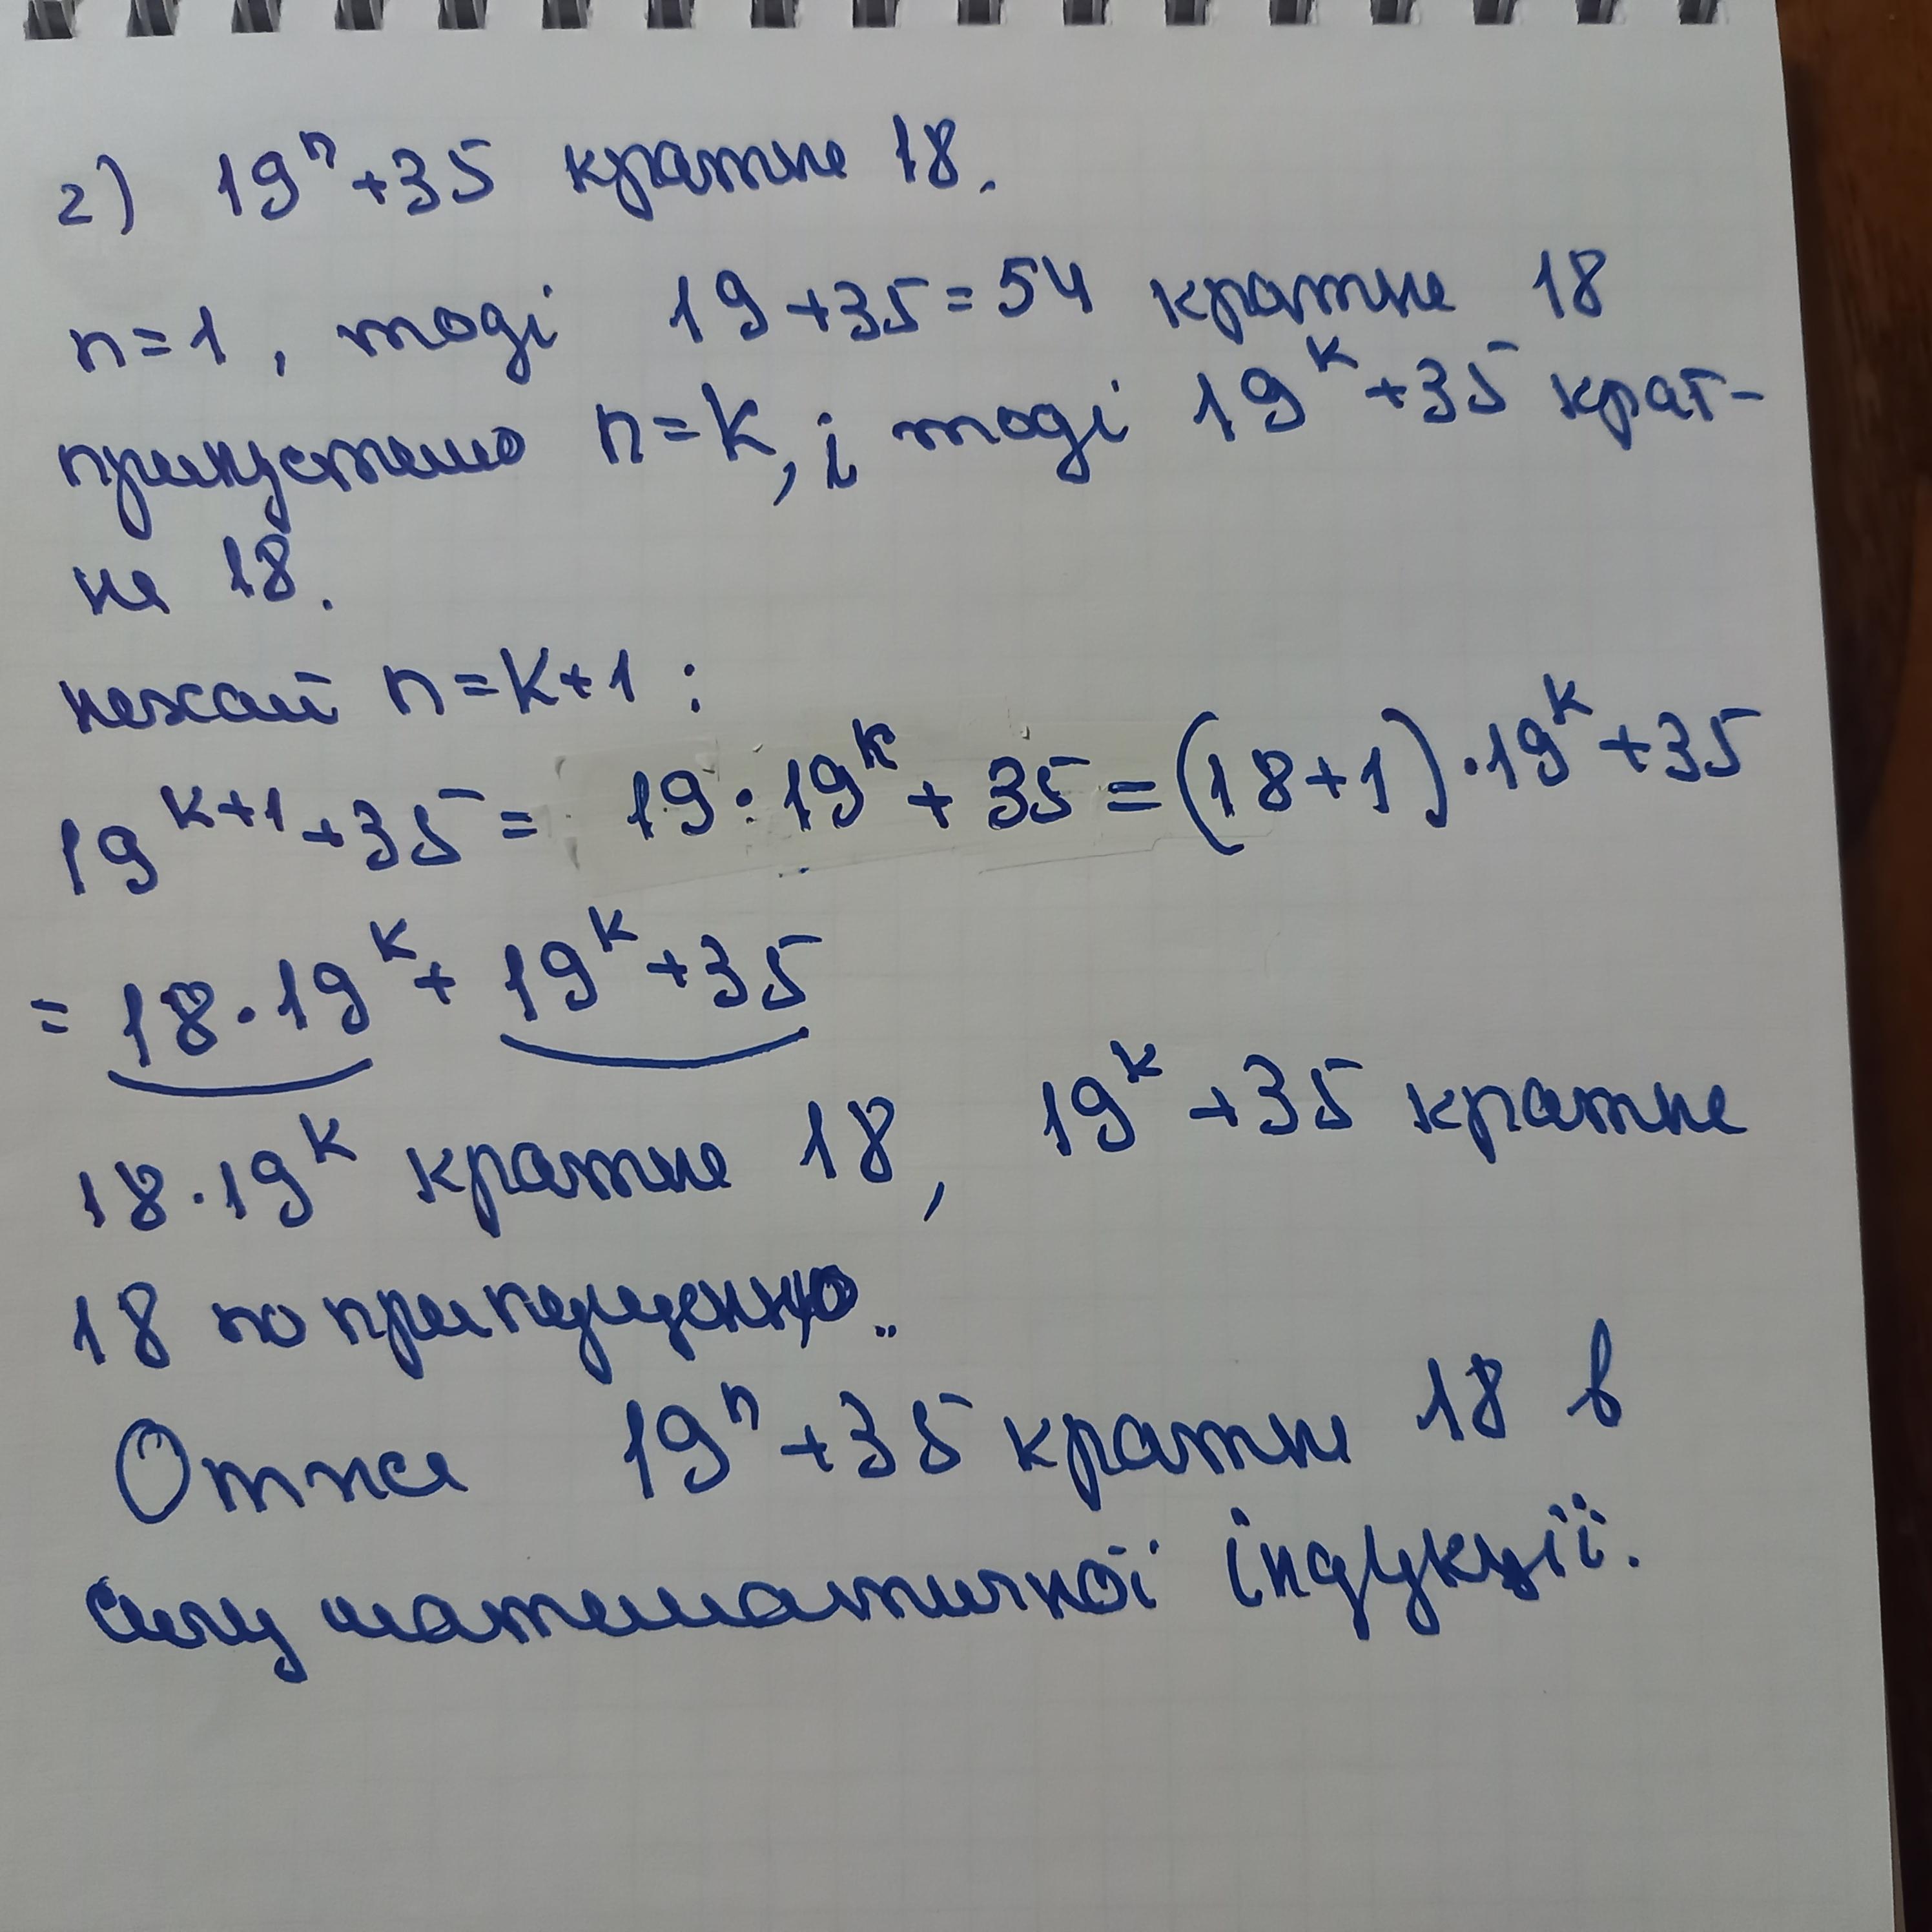 2) 19ⁿ+35 кратне 18.
n=1, тоді 19+35=54 кратне 18
припустимо n=k, і тоді 19ᵏ+35 крат-
не 18.
нехай n=k+1:
19ᵏ⁺¹+35= 19·19ᵏ+35=(18+1)·19ᵏ+35
=18·19ᵏ+19ᵏ+35
18·19ᵏ кратне 18, 19ᵏ+35 кратне
18 по припущенню..
Отже 19ⁿ+35 кратне 18 в
силу математичної індукції.